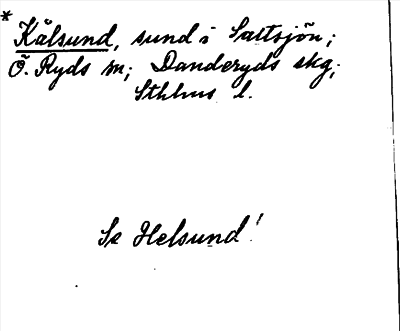 * Kälsund, sund i Saltsjön;
Ö. Ryds sn; Danderyds skg;
Sthlms l.
Se Helsund!